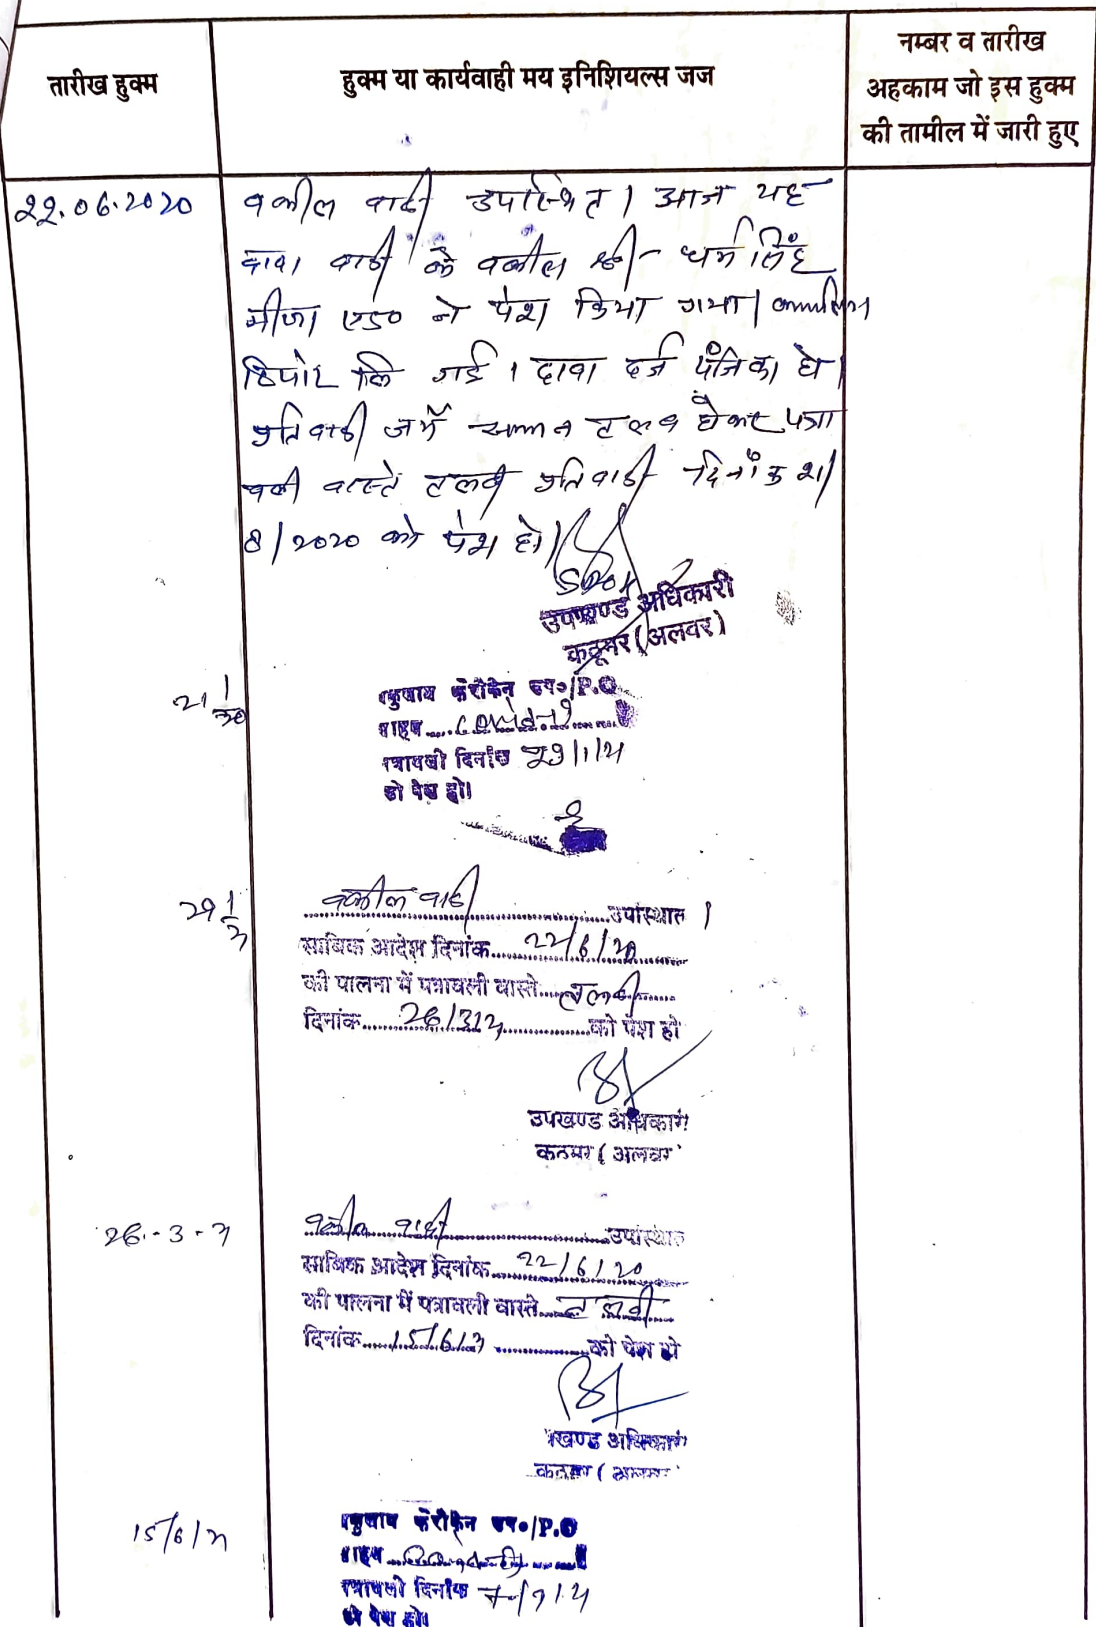 तारीख हुक्म
हुक्म या कार्यवाही मय इनिशियल्स जज
नम्बर व तारीख
अहकाम जो इस हुक्म
की तामील में जारी हुए
22.06.2020
वकील वादी उपस्थित। आज यह
दावा वादी के वकील श्री धर्मसिंह
मीणा एड० ने पेश किया गया।
रिपोर्ट ली गई। दावा दर्ज पंजिका हो।
प्रतिवादी जर्ये सम्मन तलब होकर पत्रा
वली वास्ते तलबी प्रतिवादी दिनांक
8/2020 को पेश हो।
SDO
उपखण्ड अधिकारी
कठूमर (अलवर)
21
P.O
covid-19
पत्रावली दिनांक 29/1/21
को पेश हो।
29 1/21
वकील वादी उपस्थित।
साबिक आदेश दिनांक 22/6/20
की पालना में पत्रावली वास्ते तलबी
दिनांक 26/3/21 को पेश हो
उपखण्ड अधिकारी
कठूमर (अलवर
26-3-21
वकील वादी उपस्थित
साबिक आदेश दिनांक 22/6/20
की पालना में पत्रावली वास्ते तलबी
दिनांक 15/6/21 को पेश हो
खण्ड अधिकारी
15/6/21
P.O
पत्रावली दिनांक
को पेश हो।